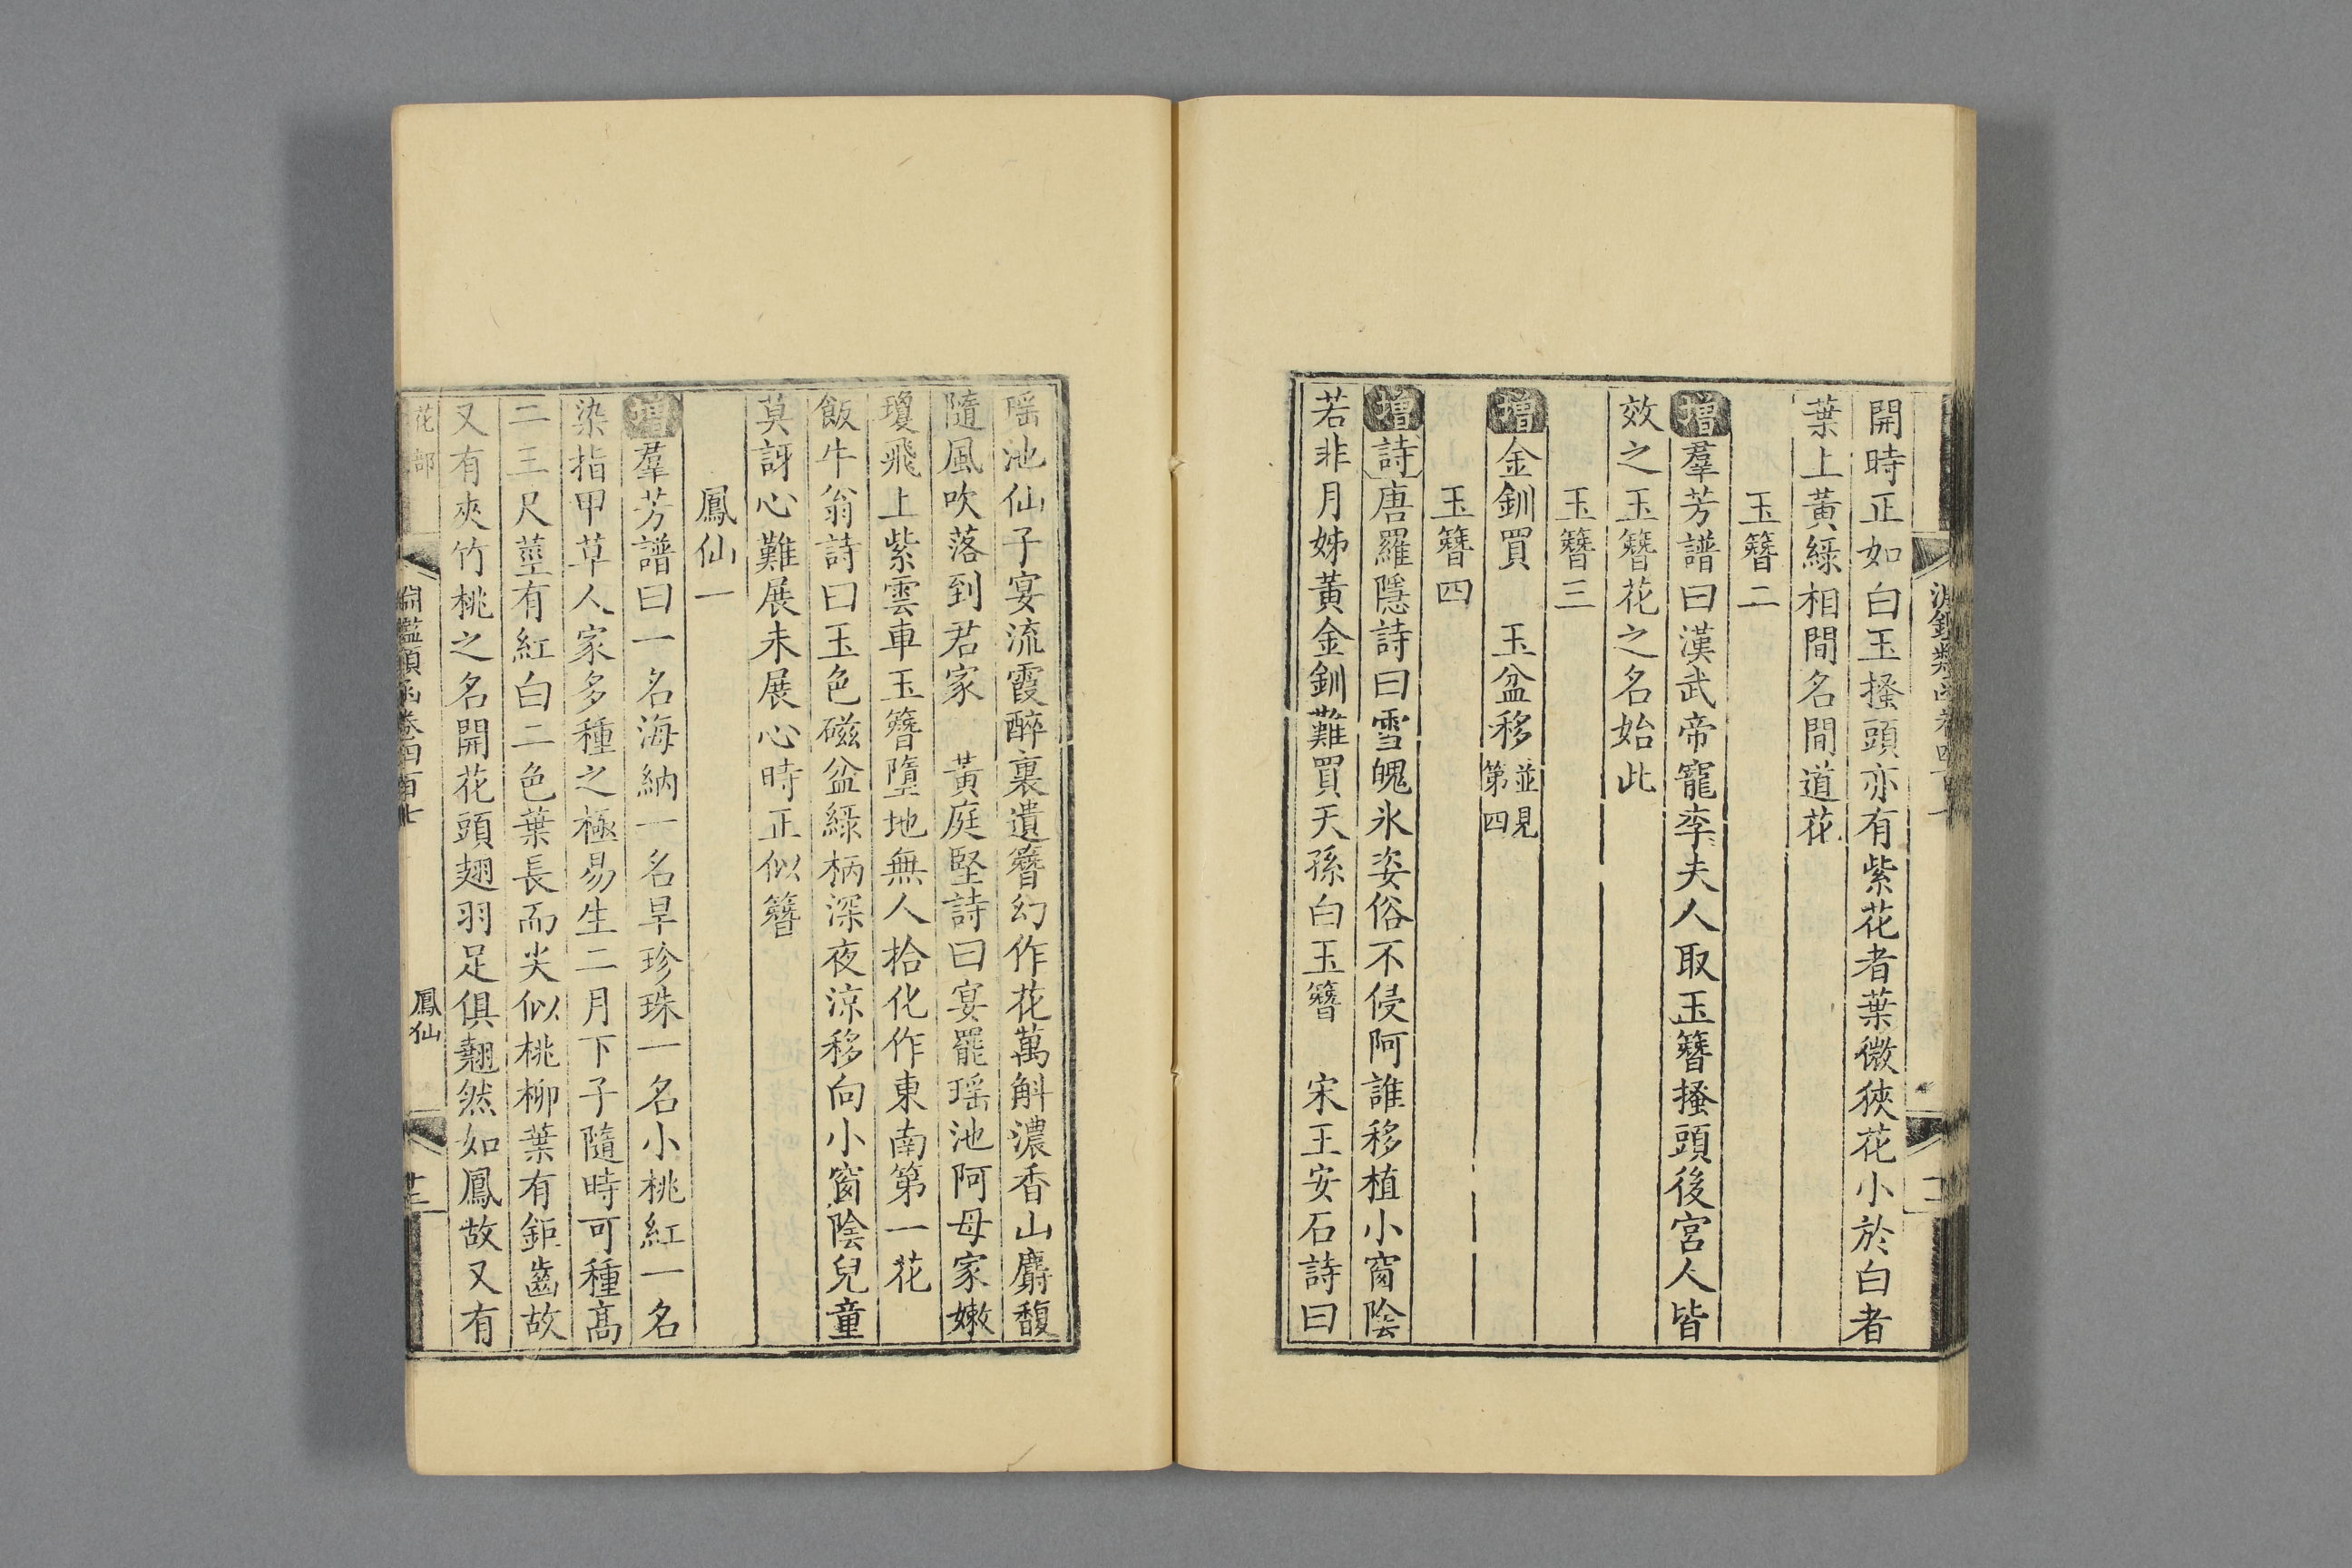 開時正如白玉搔頭亦有紫花者葉微狹花小於白者
葉上黃綠相間名間道花
玉簪二
增羣芳譜曰漢武帝寵李夫人取玉簪搔頭後宮人皆
效之玉簪花之名始此
玉簪三
增金釧買　玉盆移並見第四
玉簪四
增詩唐羅隱詩曰雪魄氷姿俗不侵阿誰移植小窗陰
若非月姊黃金釧難買天孫白玉簪　宋王安石詩曰
瑶池仙子宴流霞醉裏遺簪幻作花萬斛濃香山麝馥
隨風吹落到君家　黃庭堅詩曰宴罷瑶池阿母家嫩
瓊飛上紫雲車玉簪墮地無人拾化作東南第一花
飯牛翁詩曰玉色磁盆綠柄深夜涼移向小窗陰兒童
莫訝心難展未展心時正似簪
鳳仙一
增羣芳譜曰一名海納一名旱珍珠一名小桃紅一名
染指甲草人家多種之極易生二月下子隨時可種高
二三尺莖有紅白二色葉長而尖似桃柳葉有鉅齒故
又有夾竹桃之名開花頭翅羽足俱翹然如鳳故又有
花部
淵鑑類函卷四百七
鳳仙